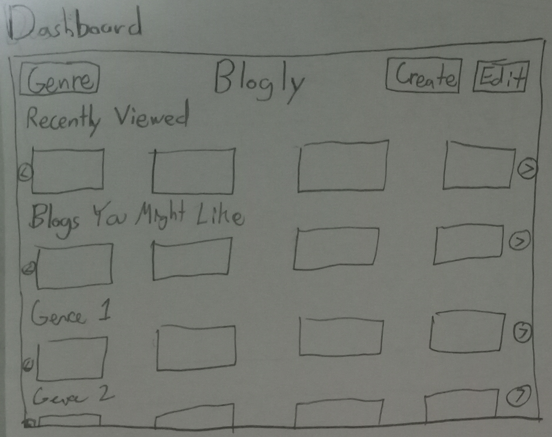 Dashboard
Genre Blogly Create Edit
Recently Viewed
< >
Blogs You Might Like
< >
Genre 1
< >
Genre 2
>